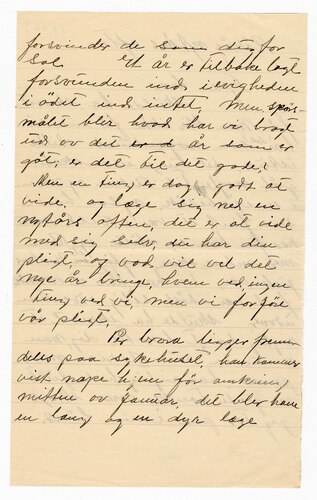 forsvinder de som dug for
Sol Et år er tilbake lagt
forsvunden ind i evigheden
i ødet ind intet Men spørs
målet blir hvad har vi bragt
ud av det år som er
gåt, er det til det gode,
Men en ting er dog godt at
vide, og læge sig ned en
nyårs aften, det er at vide
med sig selv, du har din
pligt og vad vil vel det
nye år bringe, hvem ved, ingen
ting ved vi, men vi før
vår pligt.
Per ligger frem
deles paa sykehuset, han kommer
vist nøke hjem før omkring
mitten av januar, det blev ham
en lang og en dyr læge